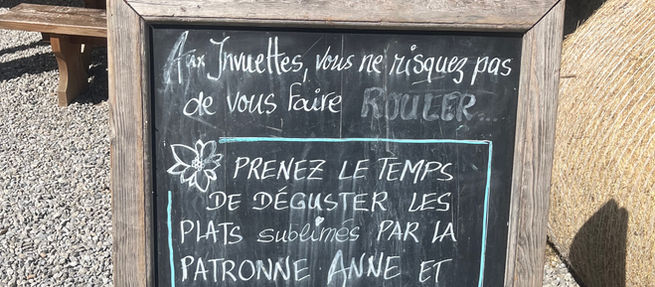 Aux Invuettes, vous ne risquez pas
de vous faire ROULER...
PRENEZ LE TEMPS
DE DÉGUSTER LES
PLATS sublimés PAR LA
PATRONNE ANNE ET